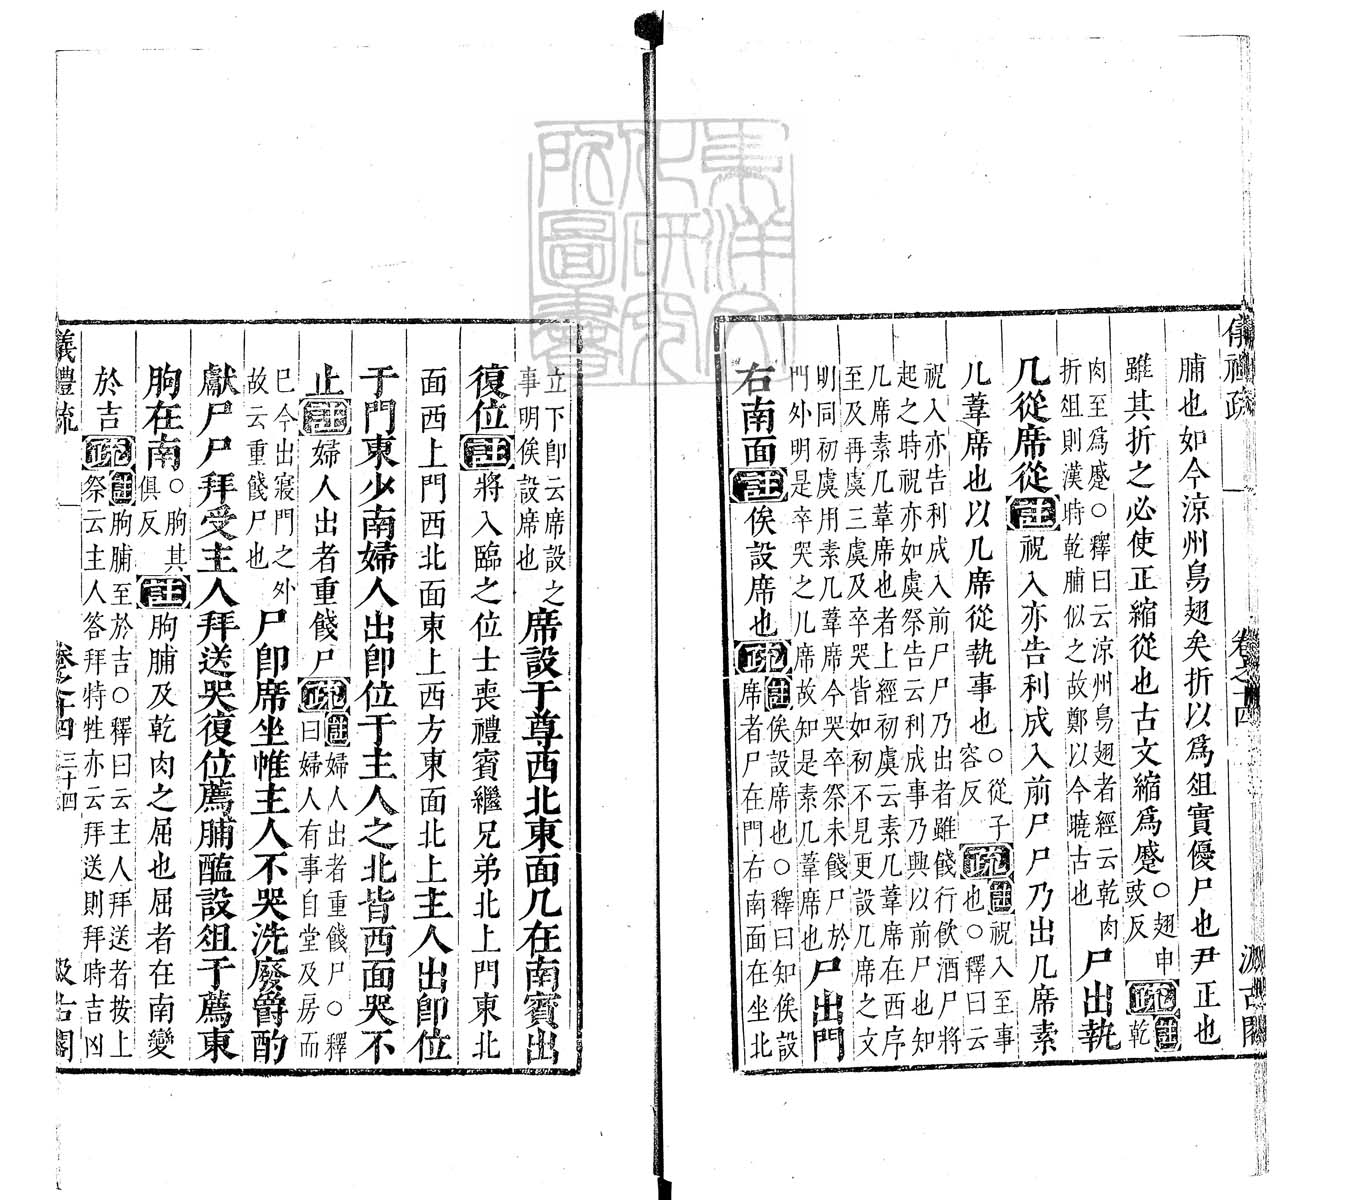 儀禮疏
卷之十四
汲古閣
脯也如今涼州烏翅矣折以爲俎實優尸也尹正也
雖其折之必使正縮從也古文縮爲蹙○翅申豉反疏註乾
肉至爲蹙○釋曰云涼州烏翅者經云乾肉
折俎則漢時乾脯似之故鄭以今曉古也尸出執
几從席從註祝入亦告利成入前尸尸乃出几席素
几葦席也以几席從執事也○從子容反疏註祝入至事也○釋曰云
祝入亦告利成入前尸尸乃出者雖餞行飲酒尸將
起之時祝亦如虞祭告云利成事乃興以前尸也知
几席素几葦席也者上經初虞云素几葦席在西序
至及再虞三虞及卒哭皆如初不見更設几席之文
明同初虞用素几葦席今哭卒祭未餞尸於
門外明是卒哭之几席故知是素几葦席也尸出門
右南面註俟設席也疏註俟設席也○釋曰知俟設
席者尸在門右南面在坐北
立下卽云席設之
事明俟設席也席設于尊西北東面几在南賓出
復位註將入臨之位士喪禮賓繼兄弟北上門東北
面西上門西北面東上西方東面北上主人出卽位
于門東少南婦人出卽位于主人之北皆西面哭不
止註婦人出者重餞尸疏註婦人出者重餞尸○釋
曰婦人有事自堂及房而
已今出寢門之外
故云重餞尸也尸卽席坐惟主人不哭洗廢爵酌
獻尸尸拜受主人拜送哭復位薦脯醢設俎于薦東
朐在南○朐其俱反註朐脯及乾肉之屈也屈者在南變
於吉疏註朐脯至於吉○釋曰云主人拜送者按上
祭云主人答拜特牲亦云拜送則拜時吉凶
儀禮疏
卷之十四
三十四
汲古閣
東洋文化研究所圖書